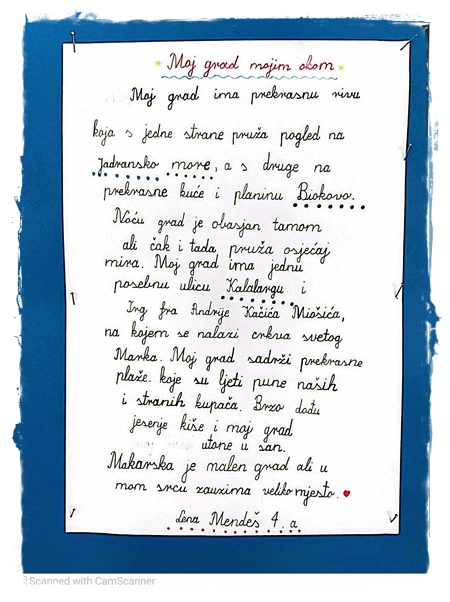 Moj grad mojim okom
Moj grad ima prekrasnu rivu
koja s jedne strane pruža pogled na
Jadransko more, a s druge na
prekrasne kuće i planinu Biokovo.
Noću grad je obasjan tamom
ali čak i tada pruža osjećaj
mira. Moj grad ima jednu
posebnu ulicu Kalalargu i
Trg fra Andrije Kačića Miošića,
na kojem se nalazi crkva svetog
Marka. Moj grad sadrži prekrasne
plaže. koje su ljeti pune naših
i stranih kupača. Brzo dođu
jesenje kiše i moj grad
utone u san.
Makarska je malen grad ali u
mom srcu zauzima veliko mjesto.
Lena Mendeš 4. a
Scanned with CamScanner